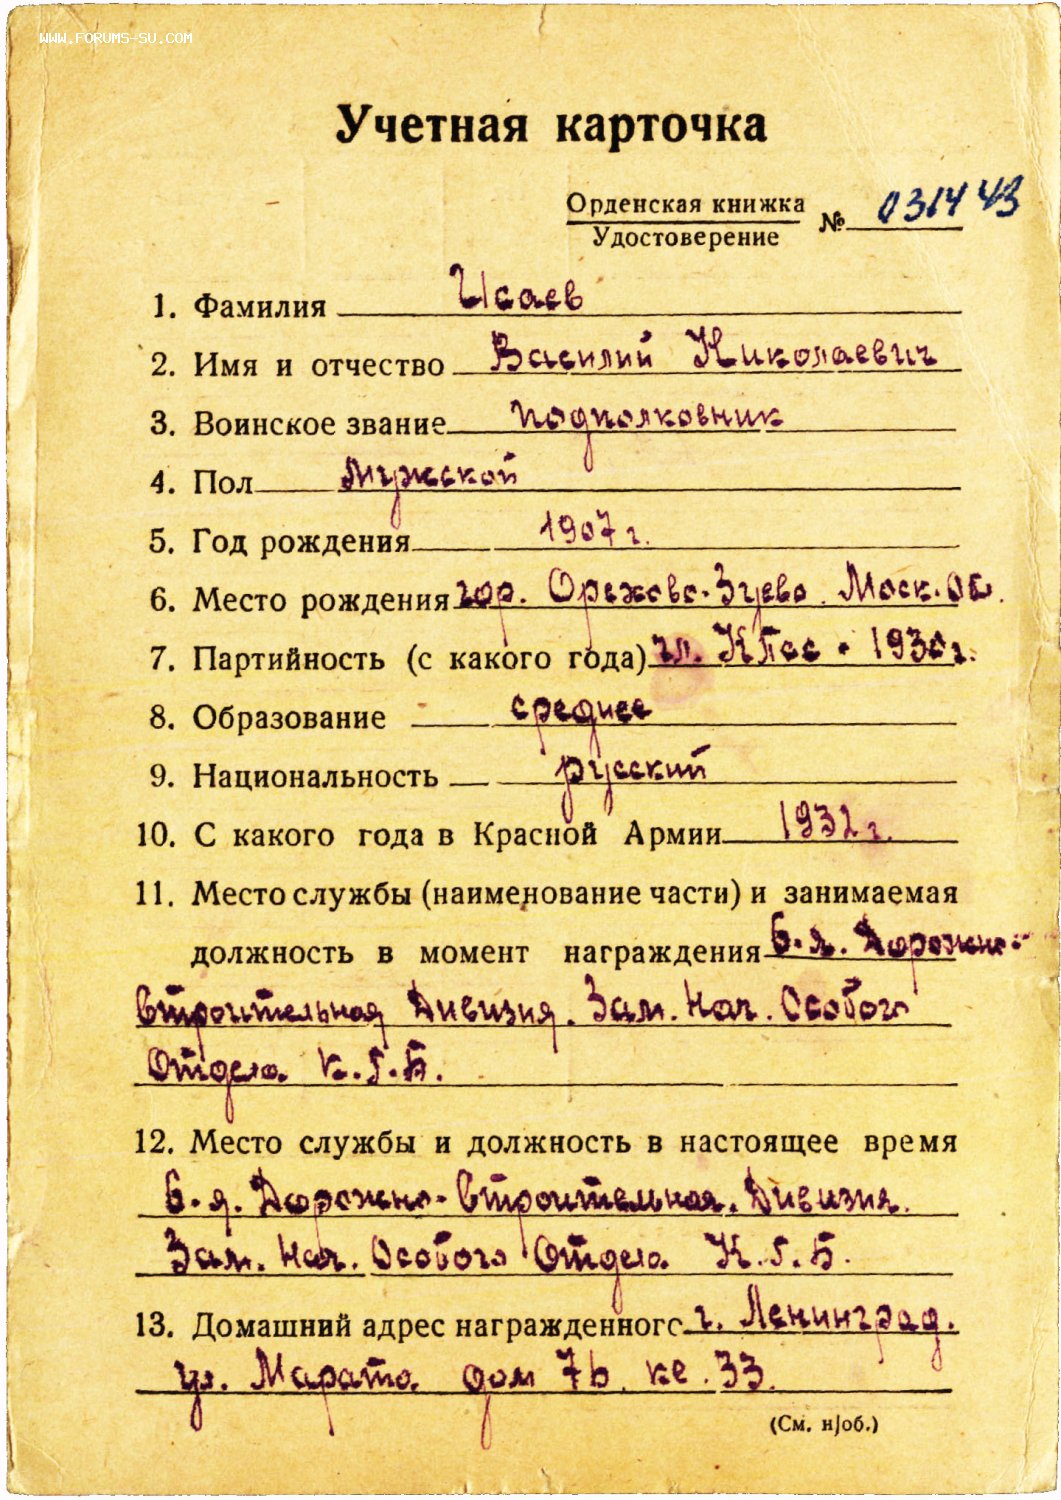 WWW.FORUMS-SU.COM
Учетная карточка
Орденская книжка
Удостоверение
№ 031443
1. Фамилия Исаев
2. Имя и отчество Василий Николаевич
3. Воинское звание подполковник
4. Пол мужской
5. Год рождения 1907 г.
6. Место рождения гор. Орехово-Зуево. Моск. Об.
7. Партийность (с какого года) чл. КПСС - 1930 г.
8. Образование среднее
9. Национальность русский
10. С какого года в Красной Армии 1932 г.
11. Место службы (наименование части) и занимаемая
должность в момент награждения 6-я. Дорожно-
Строительная Дивизия. Зам. Нач. Особого
Отдела К.Г.Б.
12. Место службы и должность в настоящее время
6-я. Дорожно-Строительная. Дивизия.
Зам. Нач. Особого Отдела К.Г.Б.
13. Домашний адрес награжденного г. Ленинград.
ул. Марата. дом 76. кв. 33.
(См. н/об.)